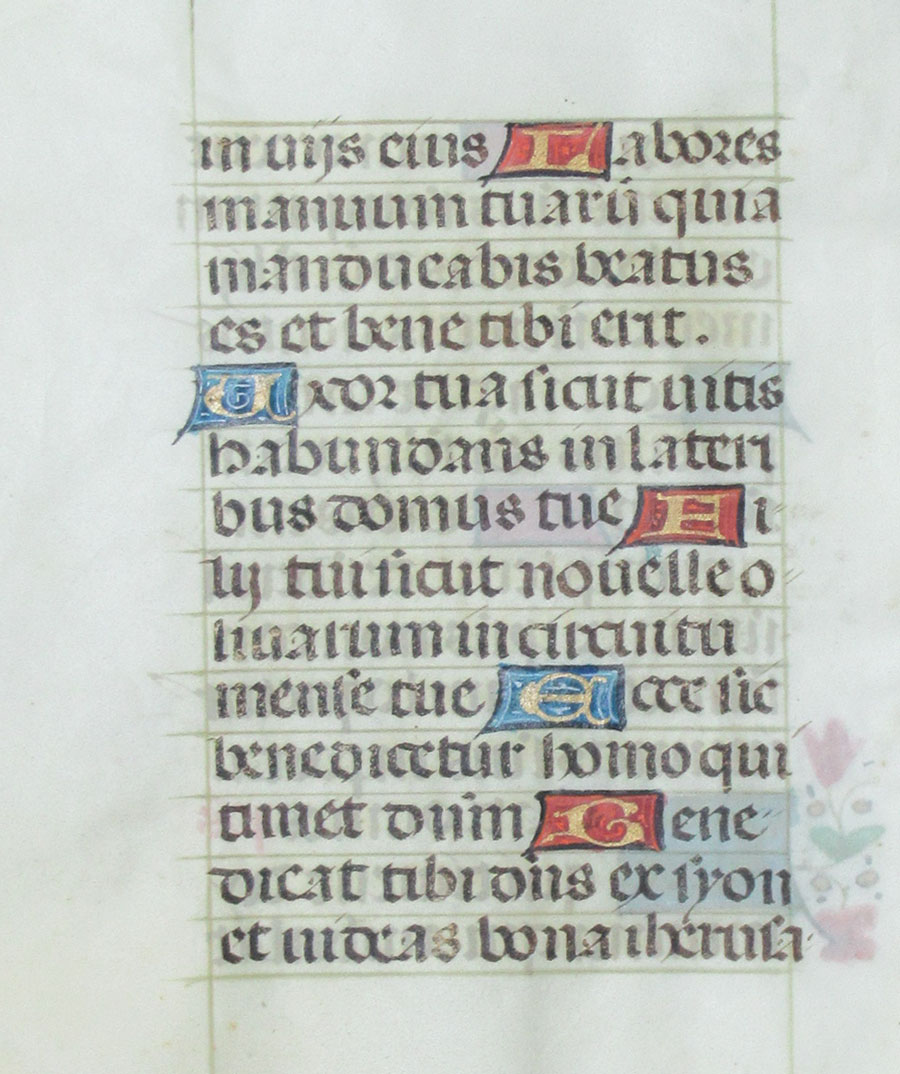 in uijs eius Labores
manuum tuarū quia
manducabis beatus
es et bene tibi erit.
Uxor tua sicut uitis
habundans in lateri
bus domus tue Fi
lij tui sicut nouelle o
liuarum in circuitu
mense tue Ecce sic
benedicetur homo qui
timet dn̄m Bene
dicat tibi dn̄s ex syon
et uideas bona iherusa